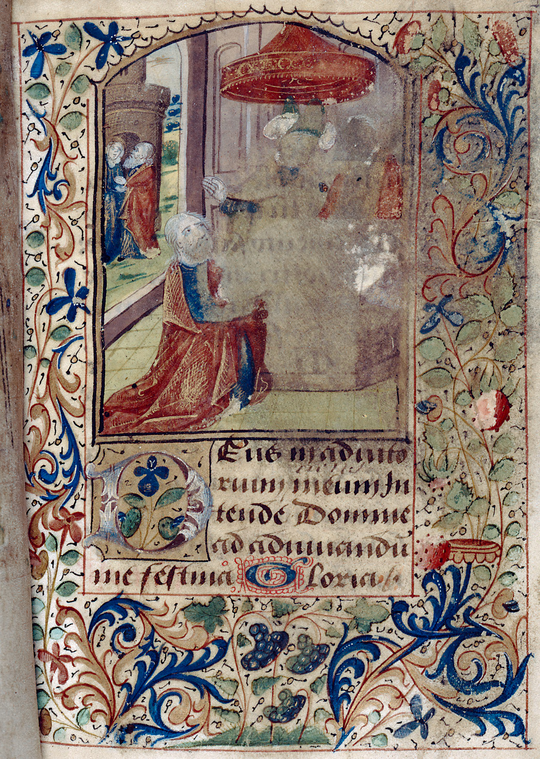 Deus in adiuto
rium meum In
tende Domine
ad adiuuandū
me festina Gloria